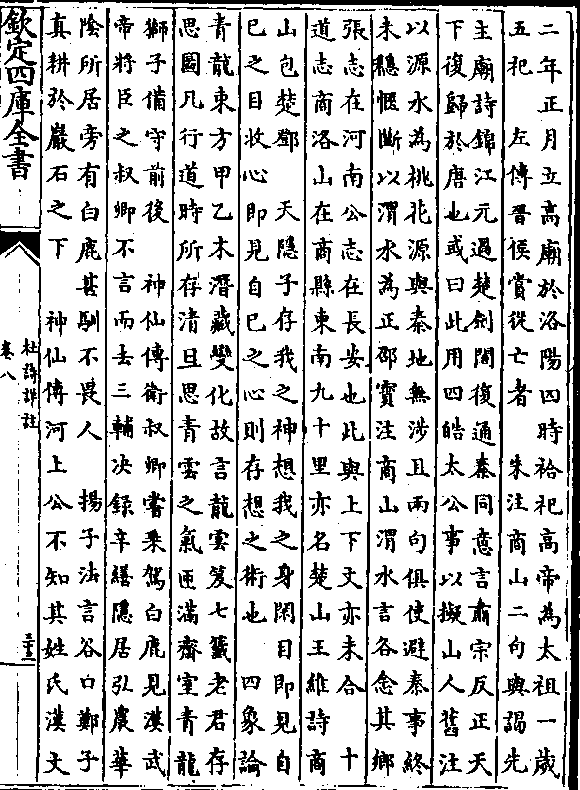 二年正月立高廟於洛陽四時祫祀高帝為太祖一歳
五祀　左傳晋侯賞從亡者　朱注商山二句與謁先
主廟詩錦江元過楚劍閣復通秦同意言肅宗反正天
下復歸於唐也或曰此用四皓太公事以擬山人舊注
以源水為桃花源與秦地無涉且兩句俱使避秦事終
未穩愜斷以渭水為正邵寳注商山渭水言各念其鄉
張志在河南公志在長安也此與上下文亦未合　十
道志商洛山在商縣東南九十里亦名楚山王維詩商
山包楚鄧　天隱子存我之神想我之身閉目即見自
已之目收心即見自已之心則存想之術也　四象論
青龍東方甲乙木潛藏變化故言龍雲笈七籤老君存
思圖凡行道時所存清旦思青雲之氣匝滿齋室青龍
獅子備守前後　神仙傳衛叔卿嘗乘駕白鹿見漢武
帝將臣之叔卿不言而去三輔决録辛繕隱居弘農華
陰所居旁有白鹿甚馴不畏人　揚子法言谷口鄭子
真耕於巖石之下　神仙傳河上公不知其姓氏漢文
欽定四庫全書
杜詩詳註
卷八
二十三